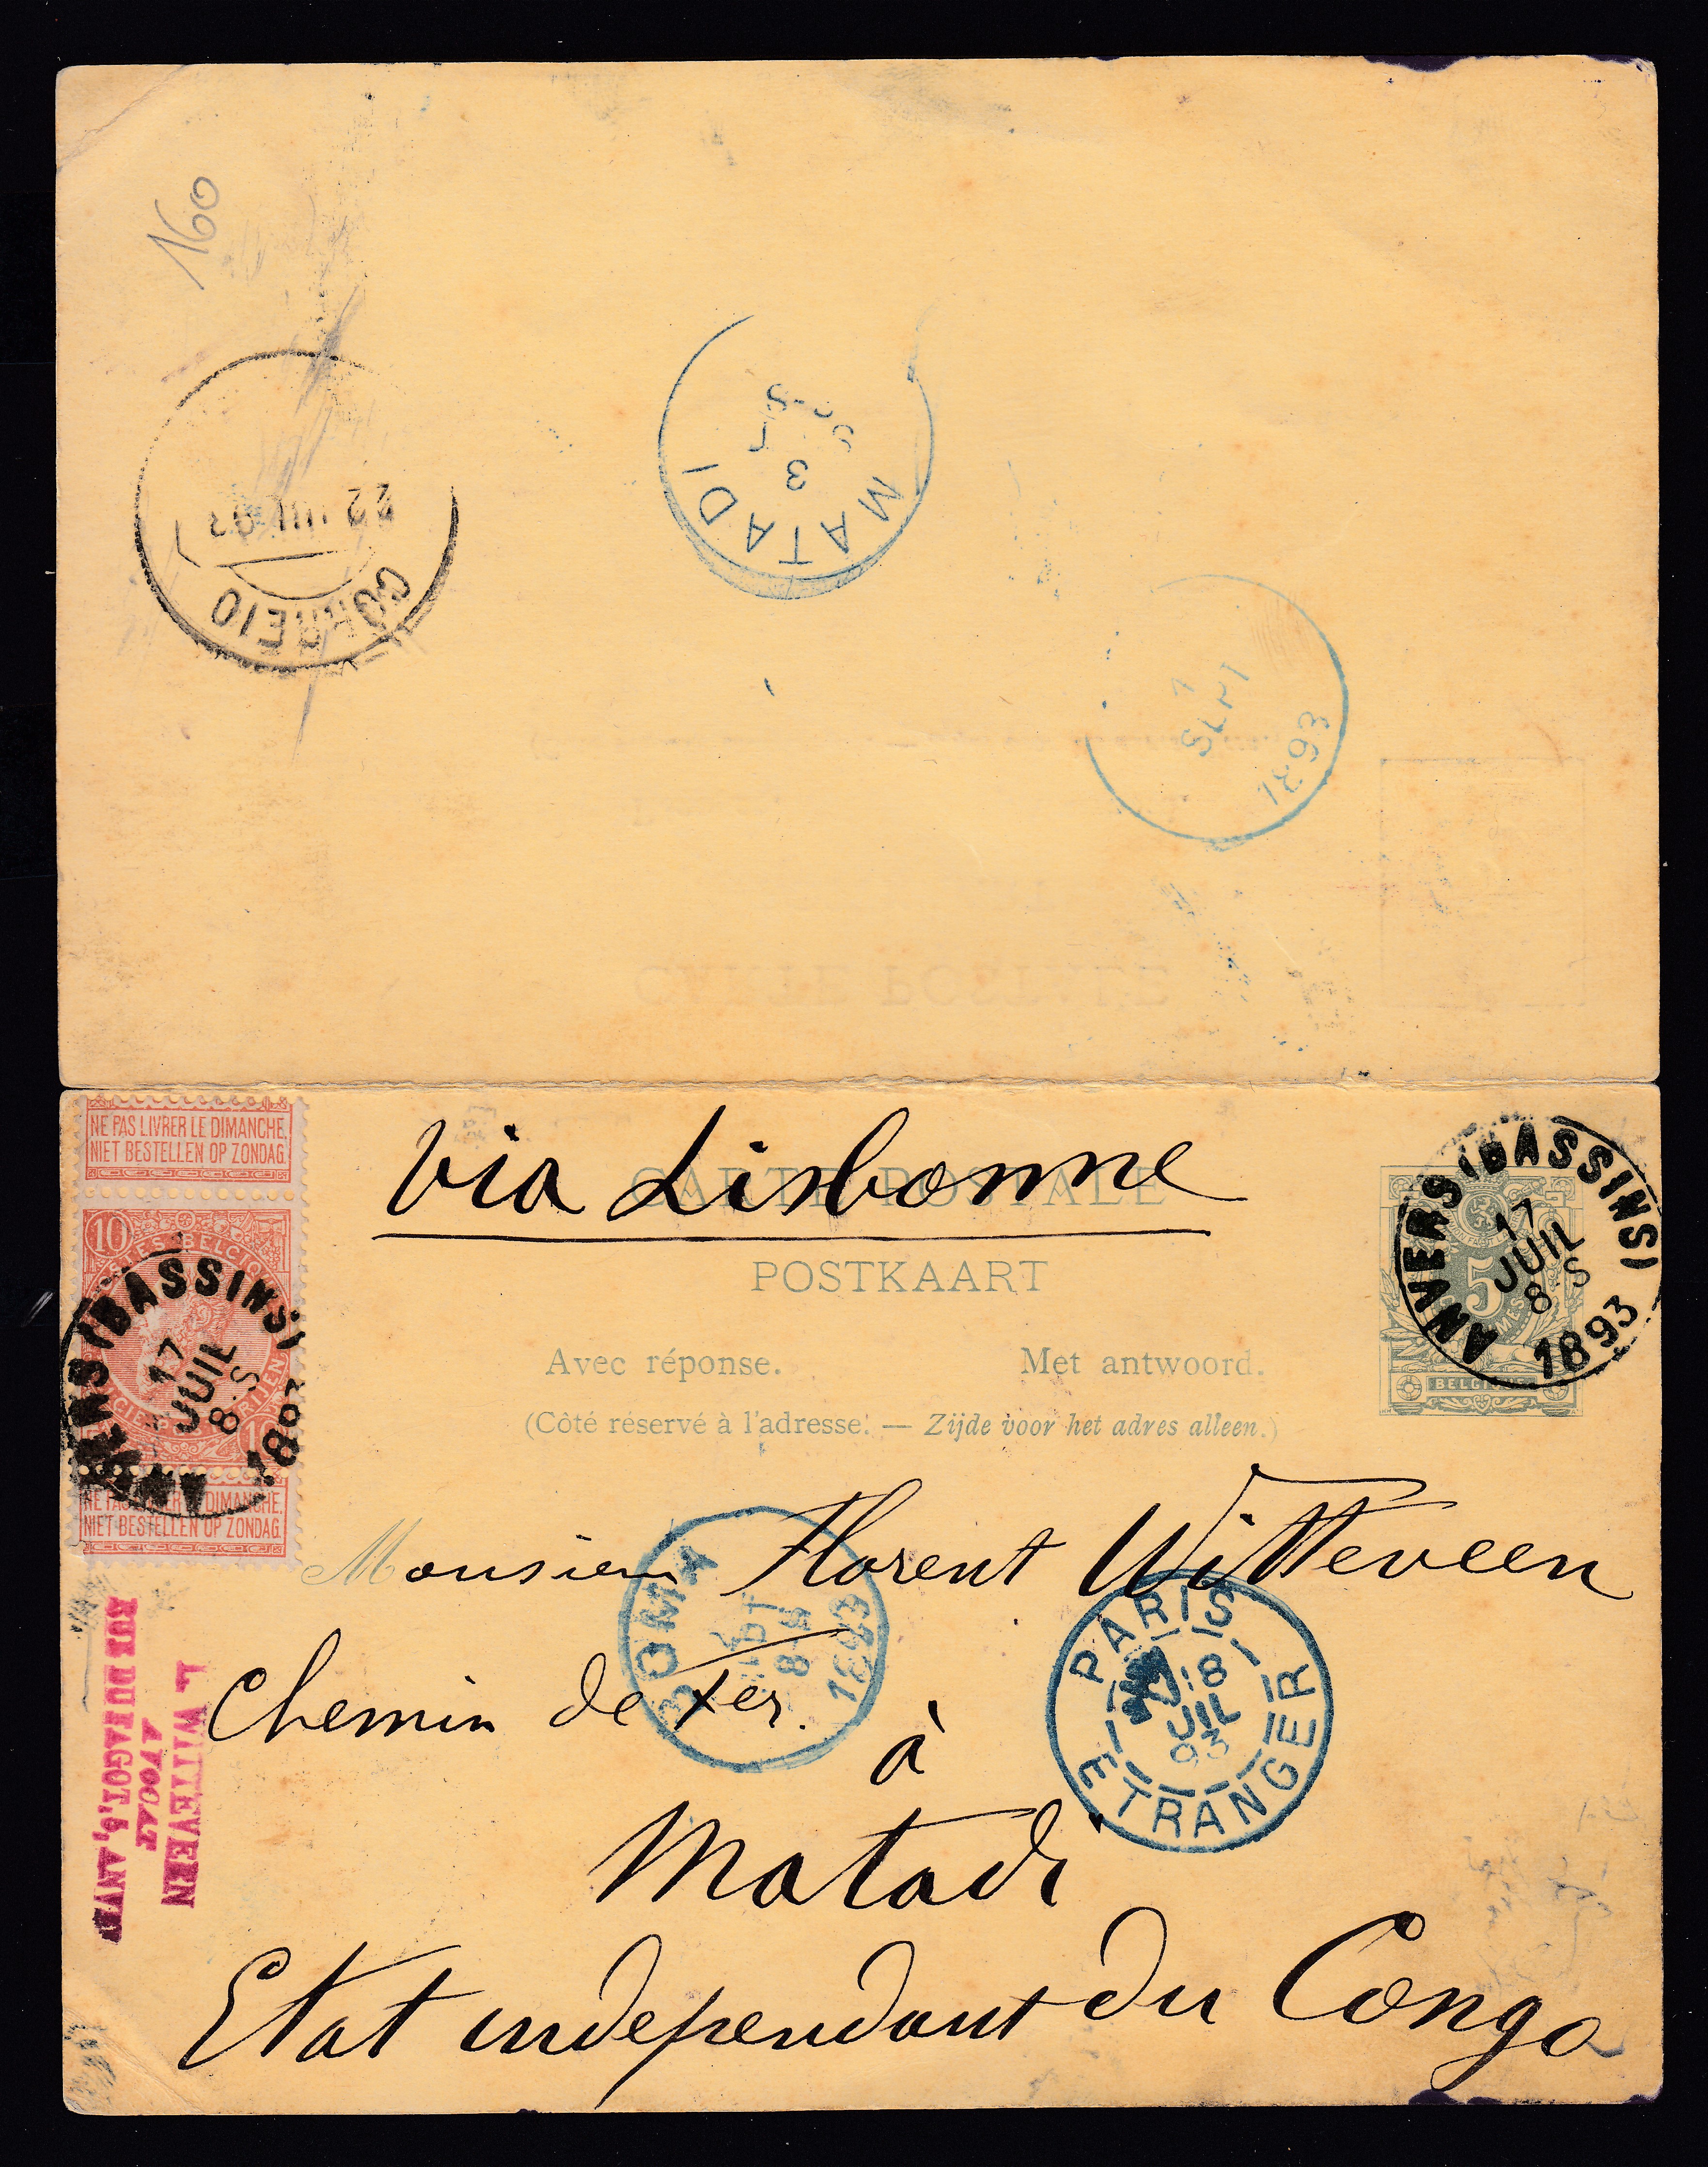 160
22 III 93
CORREIO
MATADI
3
7
1
SEPT
1893
NE PAS LIVRER LE DIMANCHE.
NIET BESTELLEN OP ZONDAG.
Via Lisbonne
CARTE POSTALE
POSTKAART
Avec réponse. Met antwoord.
(Côté réservé à l'adresse. — Zijde voor het adres alleen.)
10
POSTES BELGIQUE
ANVERS (BASSINS)
17
JUIL
8-S
1893
NE PAS LIVRER LE DIMANCHE.
NIET BESTELLEN OP ZONDAG.
ANVERS (BASSINS)
17
JUIL
8-S
1893
5
BELGIQUE
Monsieur Florent Witteveen
Chemin de fer.
à
Matadi
Etat independant du Congo
BOMA
1893
PARIS
18
JUIL
93
ETRANGER
L. WITTEVEEN
AVOCAT
RUE DU FAGOT, 5, ANVERS